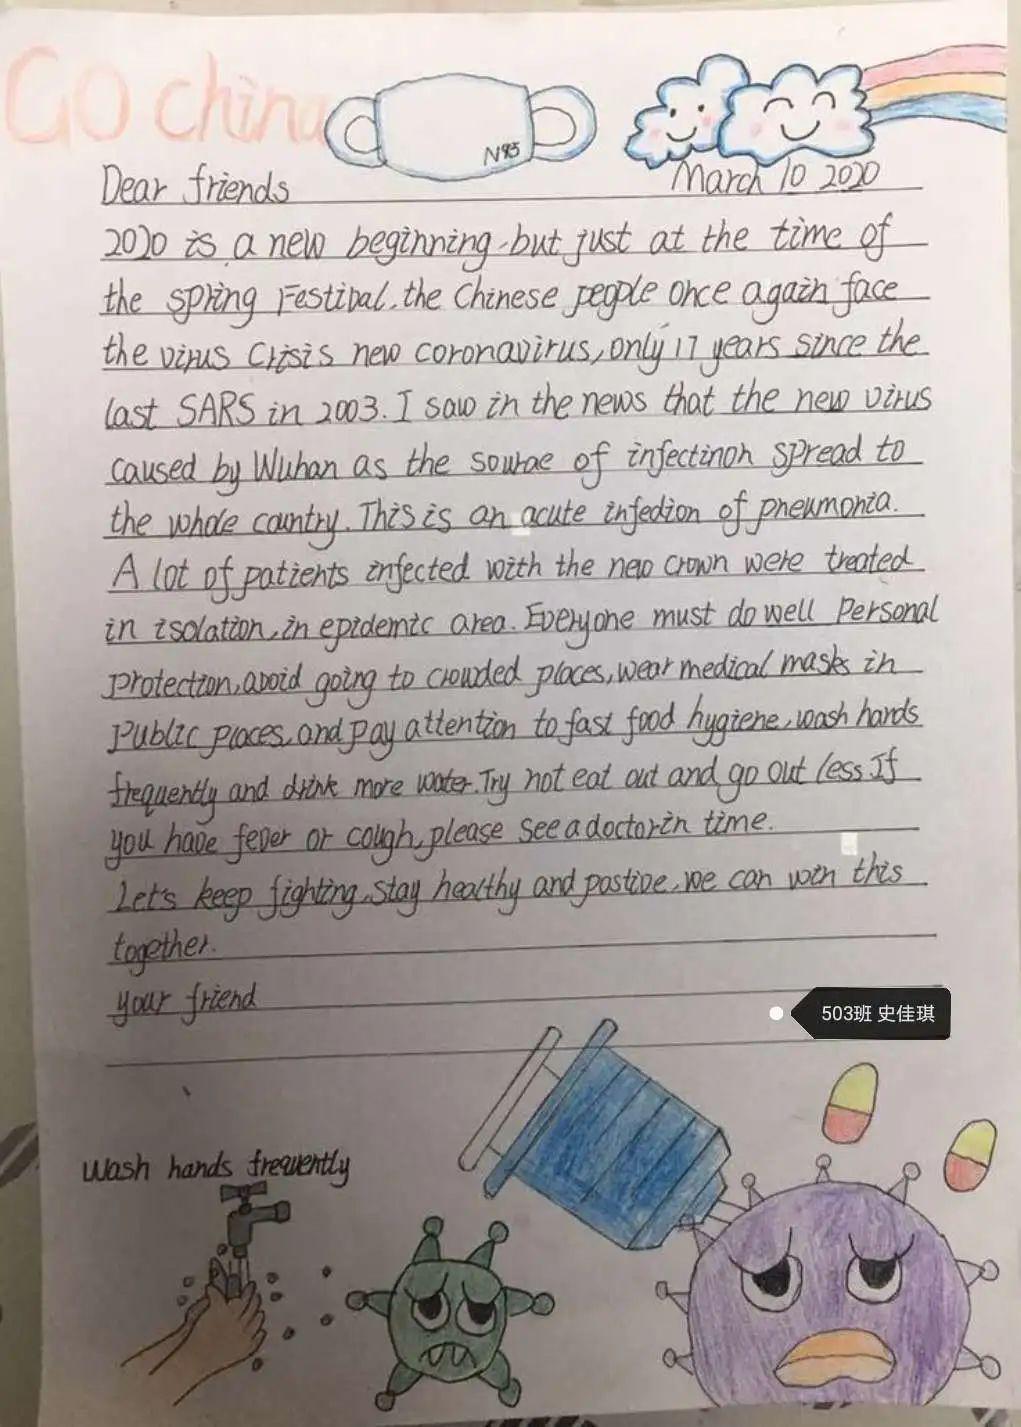 GO china
N95
Dear friends
March 10 2020
2020 is a new beginning, but just at the time of
the spring Festival, the Chinese people once again face
the virus Crisis new coronavirus, only 17 years since the
last SARS in 2003. I saw in the news that the new virus
caused by Wuhan as the sourae of infectinon spread to
the whole country. This is an acute infedion of pneumonia.
A lot of patients infected with the new crown were treated
in isolation, in epidemic area. Everyone must do well Personal
protection, avoid going to crowded places, wear medical masks in
Public places, and pay attention to fast food hygiene, wash hands
frequently and drink more water. Try not eat out and go out less If
you have fever or cough, please see a doctor in time.
Let's keep fighting, stay healthy and postive, we can win this
together.
your friend
503班 史佳琪
wash hands frequently